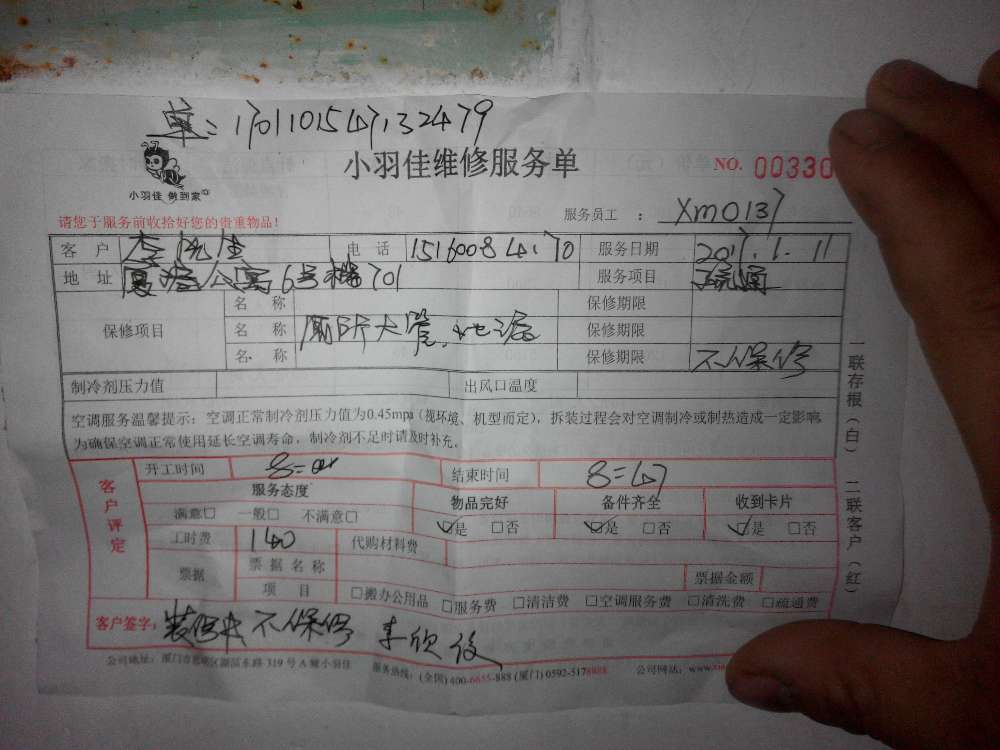 单: 1701101547132479
小羽佳 做到家
小羽佳维修服务单
NO. 00330
请您于服务前收拾好您的贵重物品!
服务员工 : XM0137
客 户 李 先生 电 话 服务日期 2017.1.11
地 址 公寓6号楼701 服务项目 疏通
名 称 保修期限
保修项目 名 称 厕所大管、地漏 保修期限
名 称 保修期限 不保修
制冷剂压力值 出风口温度
空调服务温馨提示: 空调正常制冷剂压力值为0.45mpa (视环境、机型而定), 拆装过程会对空调制冷或制热造成一定影响,
为确保空调正常使用延长空调寿命, 制冷剂不足时请及时补充。
一联存根(白) 二联客户(红)
客户评定
开工时间 结束时间
服务态度 物品完好 备件齐全 收到卡片
满意□ 一般□ 不满意□ ☑是 □否 ☑是 □否 ☑是 □否
工时费 140 代购材料费
票据 票据名称 票据金额
项 目 □搬办公用品 □服务费 □清洁费 □空调服务费 □清洗费 □疏通费
客户签字: 不保修 李欣
公司地址: 厦门市思明区湖滨东路319号A幢小羽佳 服务热线: (全国) 400-6655-888 (厦门) 0592-5178888 公司网站: www.